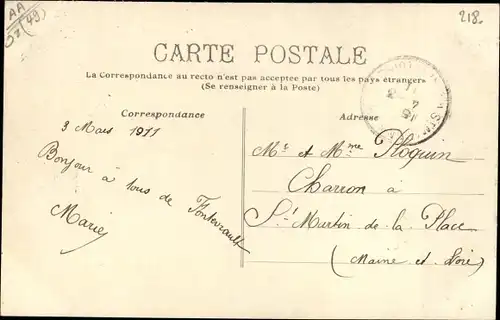 AA
(49)
218.
CARTE POSTALE
La Correspondance au recto n'est pas acceptée par tous les pays étrangers
(Se renseigner à la Poste)
Correspondance
Adresse
3 Mars 1911
Bonjour à tous de Fontevrault
Marie
Mr et Mme Ploquin
Charron a
St Martin de la Place
(Maine et Loire)